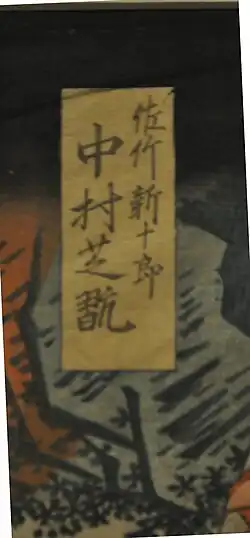 佐竹新十郎
中村芝翫